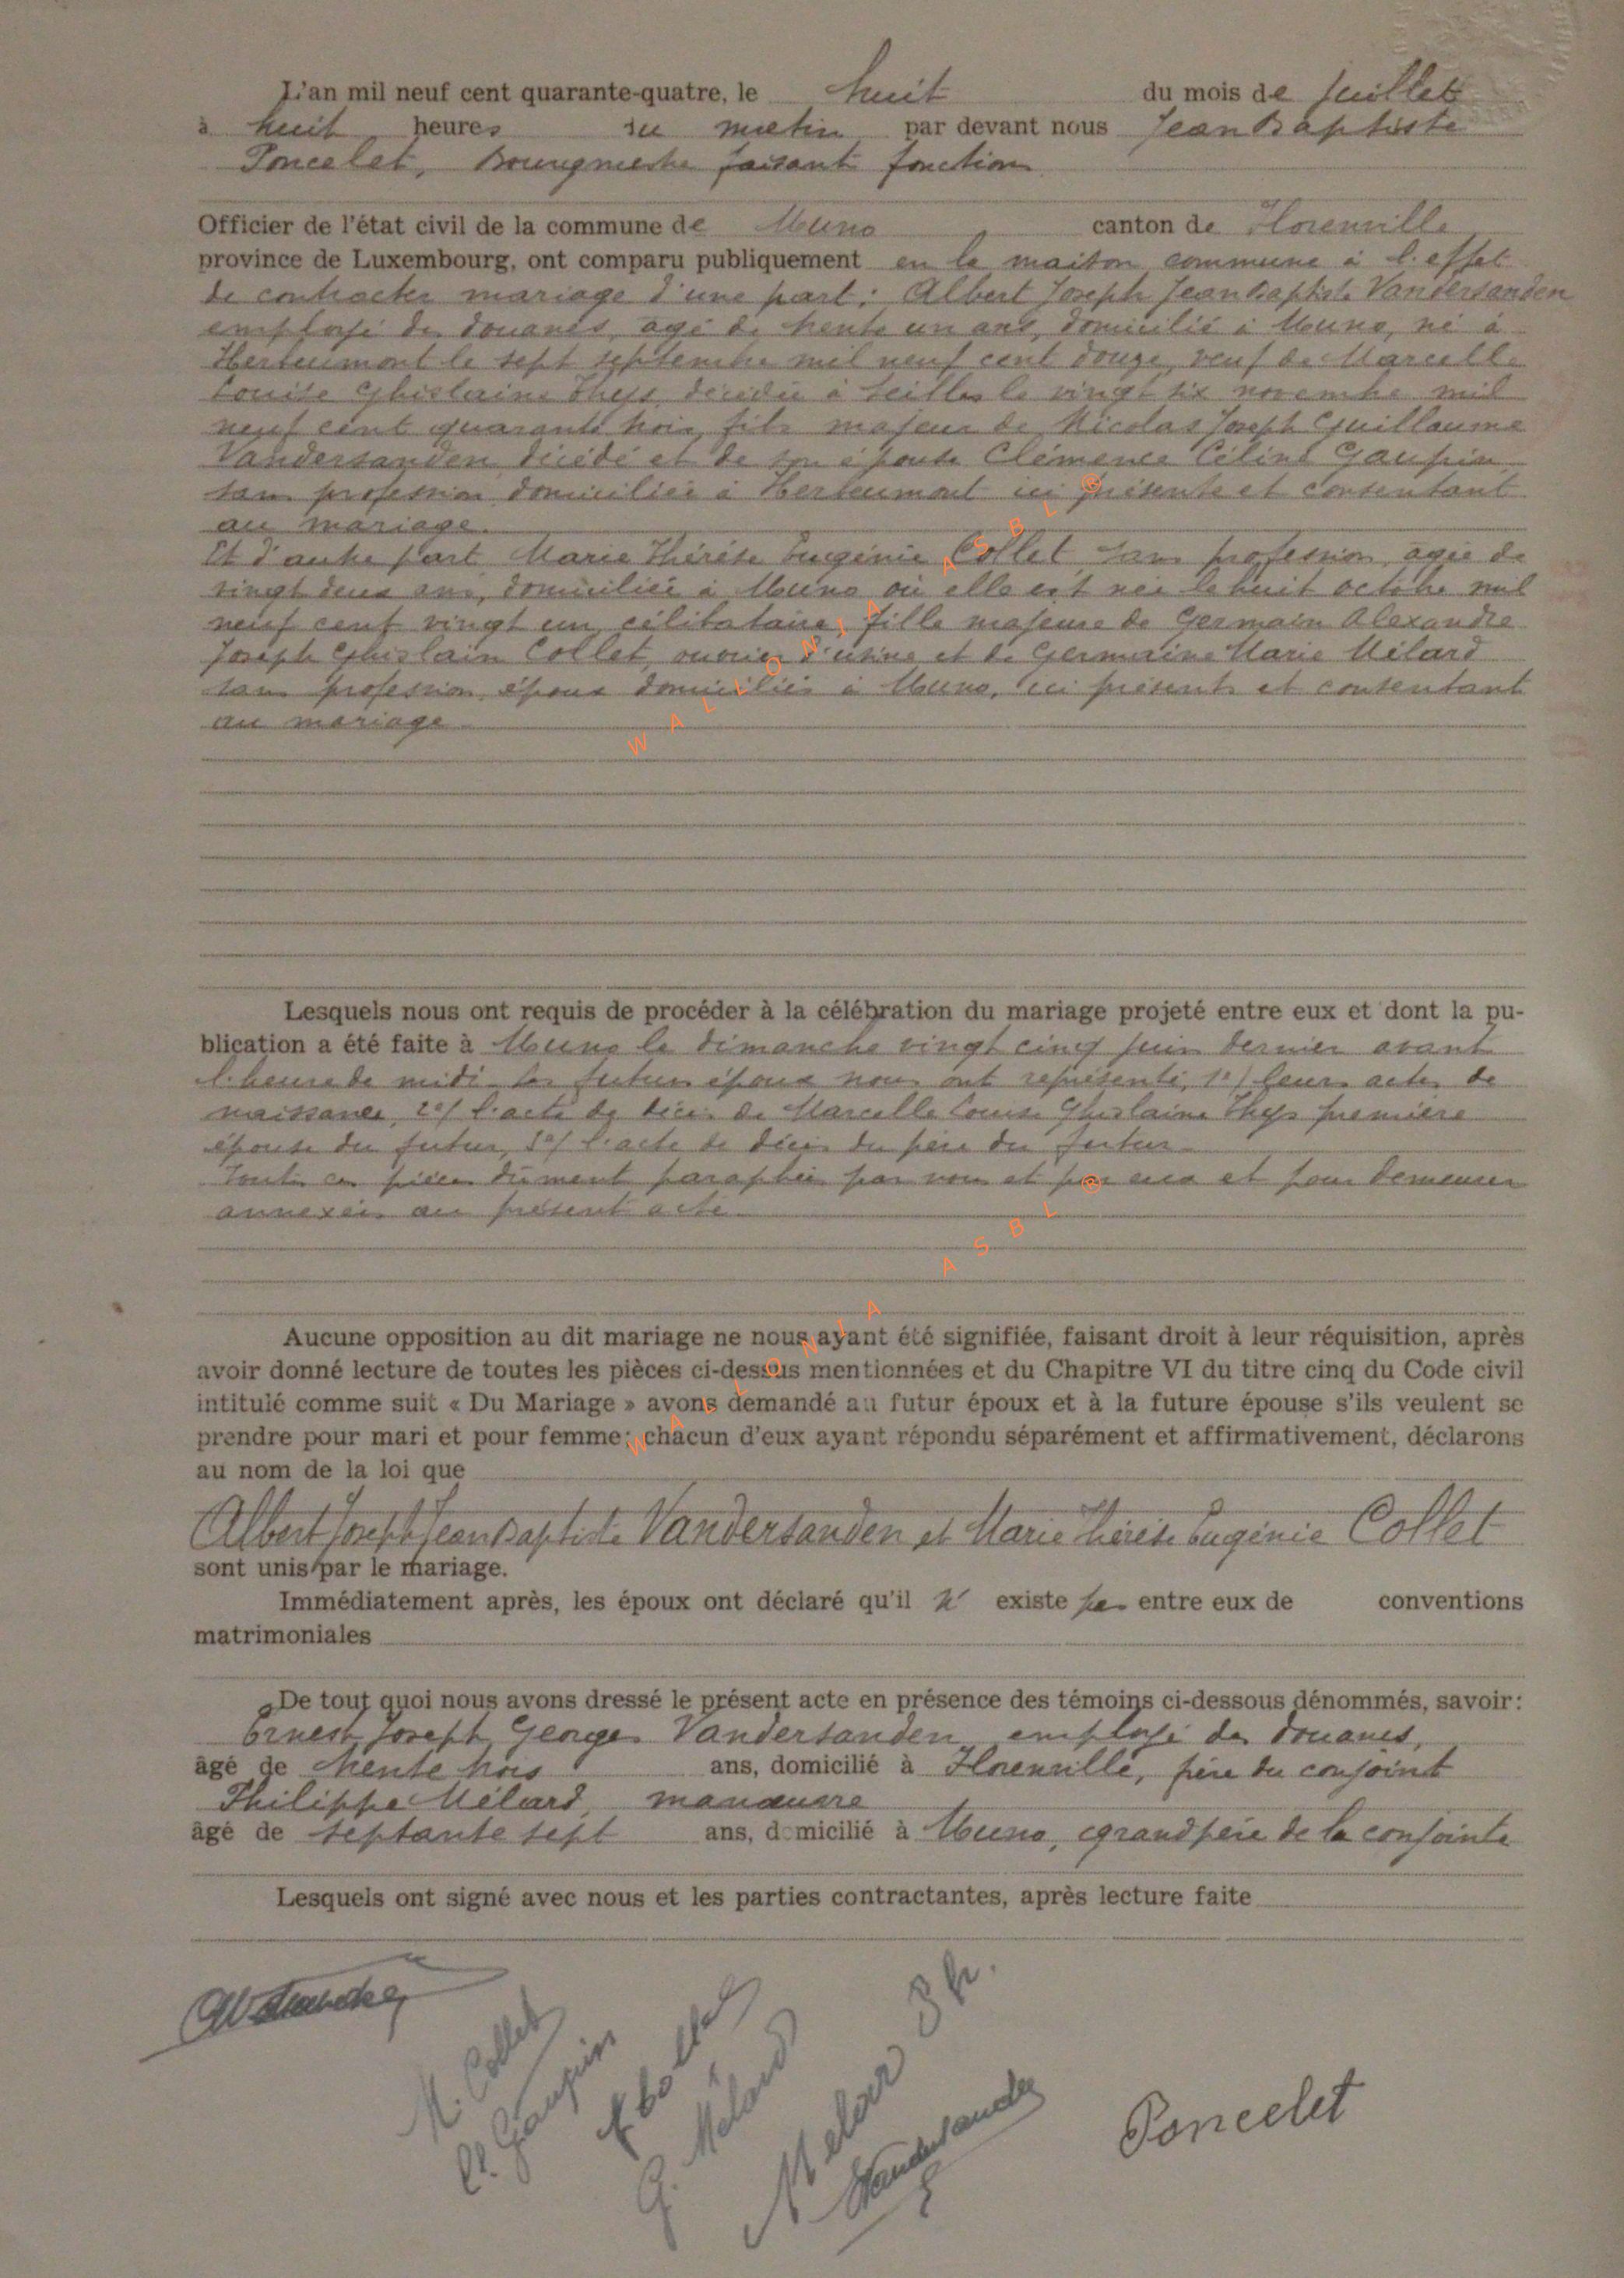 L'an mil neuf cent quarante-quatre, le huit du mois de juillet
à huit heures du matin par devant nous Jean Baptiste
Poncelet, Bourgmestre faisant fonction
Officier de l'état civil de la commune de Muno canton de Florenville
province de Luxembourg, ont comparu publiquement en la maison commune à l'effet
de contracter mariage d'une part: Albert Joseph Jean Baptiste Vandersanden
employé des douanes, agé de trente un ans, domicilié à Muno, né à
Herbeumont le sept septembre mil neuf cent douze, veuf de Marcelle
Louise Ghislaine Thys, décédée à Seilles le vingt six novembre mil
neuf cent quarante trois, fils majeur de Nicolas Joseph Guillaume
Vandersanden décédé et de son épouse Clémence Céline Gaupin
sans profession domiciliée à Herbeumont ici présente et consentant
au mariage.
Et d'autre part Marie Thérèse Eugénie Collet sans profession, agée de
vingt deux ans, domiciliée à Muno où elle est née le huit octobre mil
neuf cent vingt un, célibataire, fille majeure de Germain Alexandre
Joseph Ghislain Collet, ouvrier d'usine et de Germaine Marie Mélard
sans profession, époux domiciliés à Muno, ici présents et consentant
au mariage
Lesquels nous ont requis de procéder à la célébration du mariage projeté entre eux et dont la pu-
blication a été faite à Muno le dimanche vingt cinq juin dernier avant
l'heure de midi les futurs époux nous ont représenté, 1º/ leurs actes de
naissance, 2º/ l'acte de décès de Marcelle Louise Ghislaine Thys première
épouse du futur, 3º/ l'acte de décès du père du futur
Toutes ces pièces dûment paraphées par nous et par eux et pour demeurer
annexées au présent acte
Aucune opposition au dit mariage ne nous ayant été signifiée, faisant droit à leur réquisition, après
avoir donné lecture de toutes les pièces ci-dessus mentionnées et du Chapitre VI du titre cinq du Code civil
intitulé comme suit « Du Mariage » avons demandé au futur époux et à la future épouse s'ils veulent se
prendre pour mari et pour femme; chacun d'eux ayant répondu séparément et affirmativement, déclarons
au nom de la loi que
Albert Joseph Jean Baptiste Vandersanden et Marie Thérèse Eugénie Collet
sont unis par le mariage.
Immédiatement après, les époux ont déclaré qu'il n' existe pas entre eux de conventions
matrimoniales
De tout quoi nous avons dressé le présent acte en présence des témoins ci-dessous dénommés, savoir:
Ernest Joseph Georges Vandersanden employé des douanes,
âgé de trente trois ans, domicilié à Florenville, frère du conjoint
Philippe Mélard, manœuvre
âgé de septante sept ans, domicilié à Muno, grandpère de la conjointe
Lesquels ont signé avec nous et les parties contractantes, après lecture faite
M. Collet
Cl. Gaupin
G. Mélard
Melard Ph.
Vandersanden
E
Poncelet
WALLONIA ASBL ®
WALLONIA ASBL ®